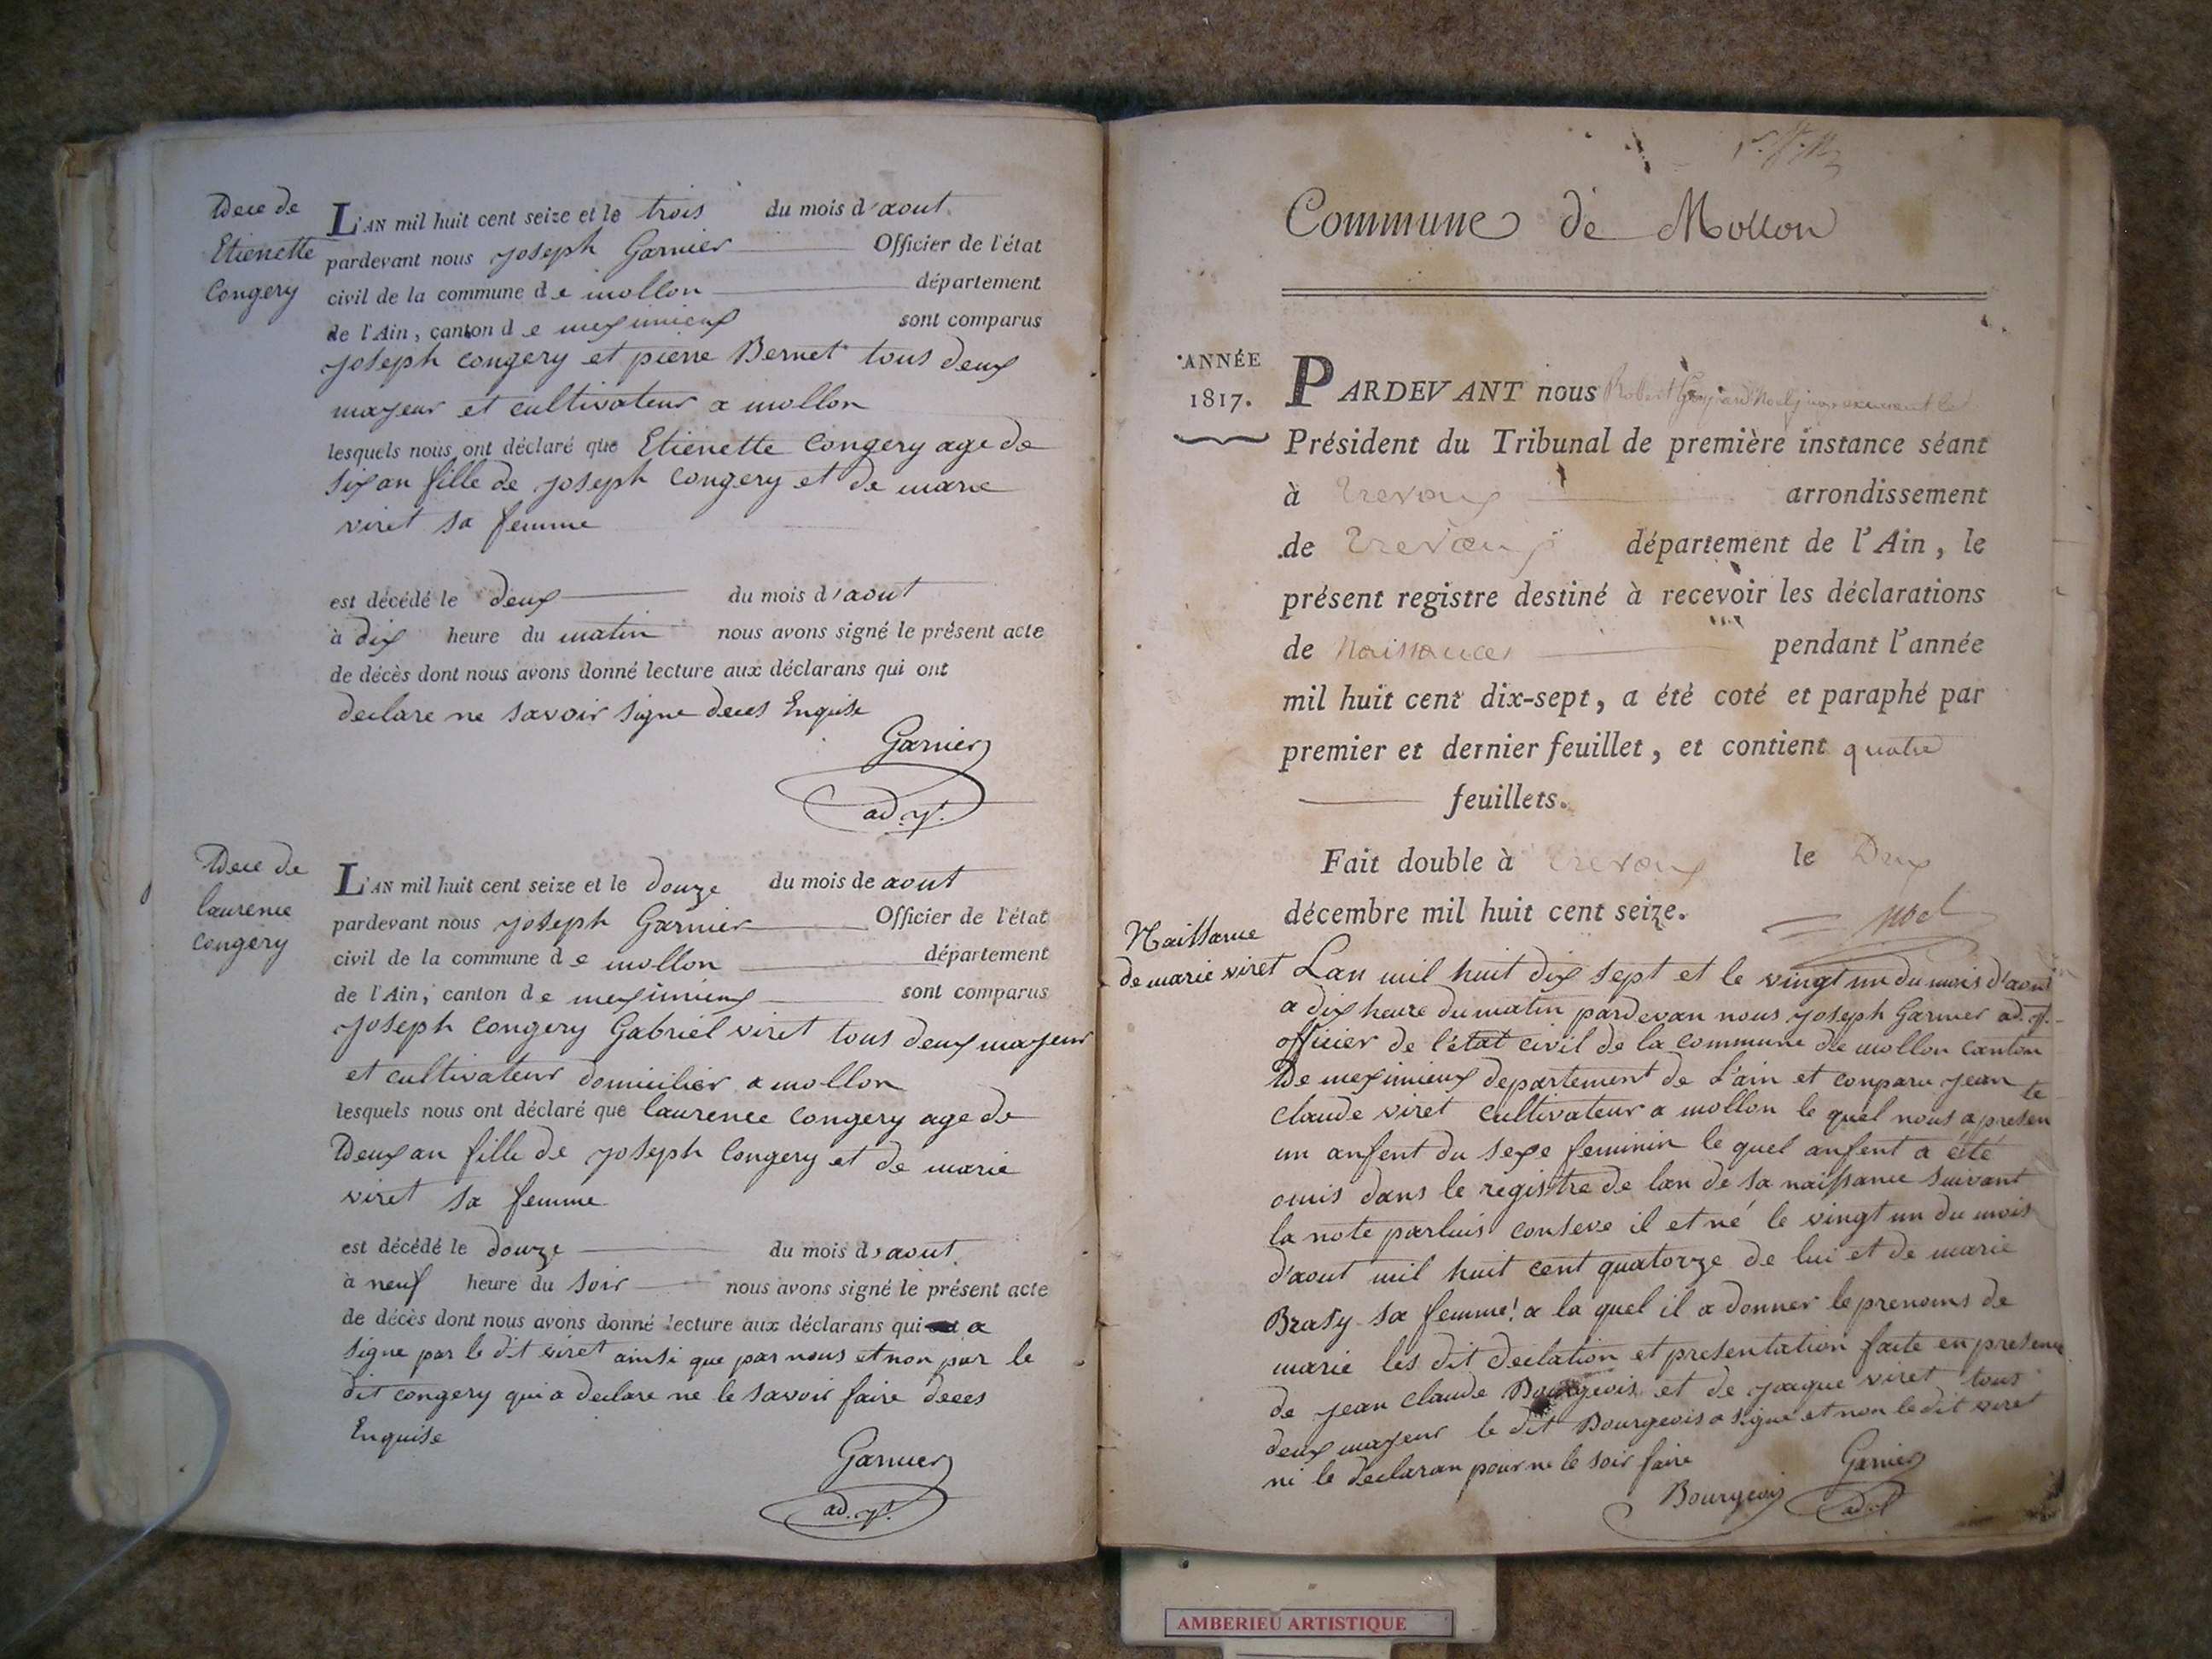 Dece de
Etienette
Congery
L'AN mil huit cent seize et le trois du mois d'aout
pardevant nous joseph Garnier Officier de l'état
civil de la commune de mollon département
de l'Ain, canton de meximieux sont comparus
joseph congery et pierre Bernet tous deux
majeur et cultivateur a mollon
lesquels nous ont déclaré que Etienette Congery age de
six an fille de joseph Congery et de marie
viret sa femme
est décédé le deux du mois d'aout
à dix heure du matin nous avons signé le présent acte
de décès dont nous avons donné lecture aux déclarans qui ont
declare ne savoir signe deces Enquise
Garnier
ad.j.
Dece de
laurence
Congery
L'AN mil huit cent seize et le douze du mois de aout
pardevant nous joseph Garnier Officier de l'état
civil de la commune de mollon département
de l'Ain, canton de meximieux sont comparus
joseph Congery Gabriel viret tous deux majeur
et cultivateur domicilier a mollon
lesquels nous ont déclaré que laurence Congery age de
Deux an fille de joseph Congery et de marie
viret sa femme
est décédé le douze du mois d'aout
à neuf heure du soir nous avons signé le présent acte
de décès dont nous avons donné lecture aux déclarans qui a
signe par le dit viret ainsi que par nous et non par le
dit congery qui a declare ne le savoir faire deces
Enquise
Garnier
ad.j.
Commune de Mollon
ANNÉE
1817.
PARDEVANT nous Robert
Président du Tribunal de première instance séant
à Trevoux arrondissement
de Trevoux département de l'Ain, le
présent registre destiné à recevoir les déclarations
de Naissances pendant l'année
mil huit cent dix-sept, a été coté et paraphé par
premier et dernier feuillet, et contient quatre
feuillets.
Fait double à Trevoux le Dix
décembre mil huit cent seize.
Noel
Naissance
de marie viret
Lan mil huit dix sept et le vingt un du mois d'aout
a dix heure du matin pardevan nous joseph Garnier ad.j.
officier de l'état civil de la commune de mollon canton
De meximieux departement de L'ain et conparu jean
claude viret cultivateur a mollon le quel nous a presente
un anfent du sexe feminin le quel anfent a été
omis dans le registre de lan de sa naissance suivant
la note par luis conseve il et né le vingt un du mois
d'aout mil huit cent quatorze de lui et de marie
Brasy sa femme! a la quel il a donner le prenoms de
marie les dit declation et presentation faite en presence
de jean claude Bourgeois et de jaque viret tous
deux majeur le dit Bourgeois a signe et non le dit viret
ni le declaran pour ne le soir faire
Garnier
Bourgeois
ad.j
AMBERIEU ARTISTIQUE